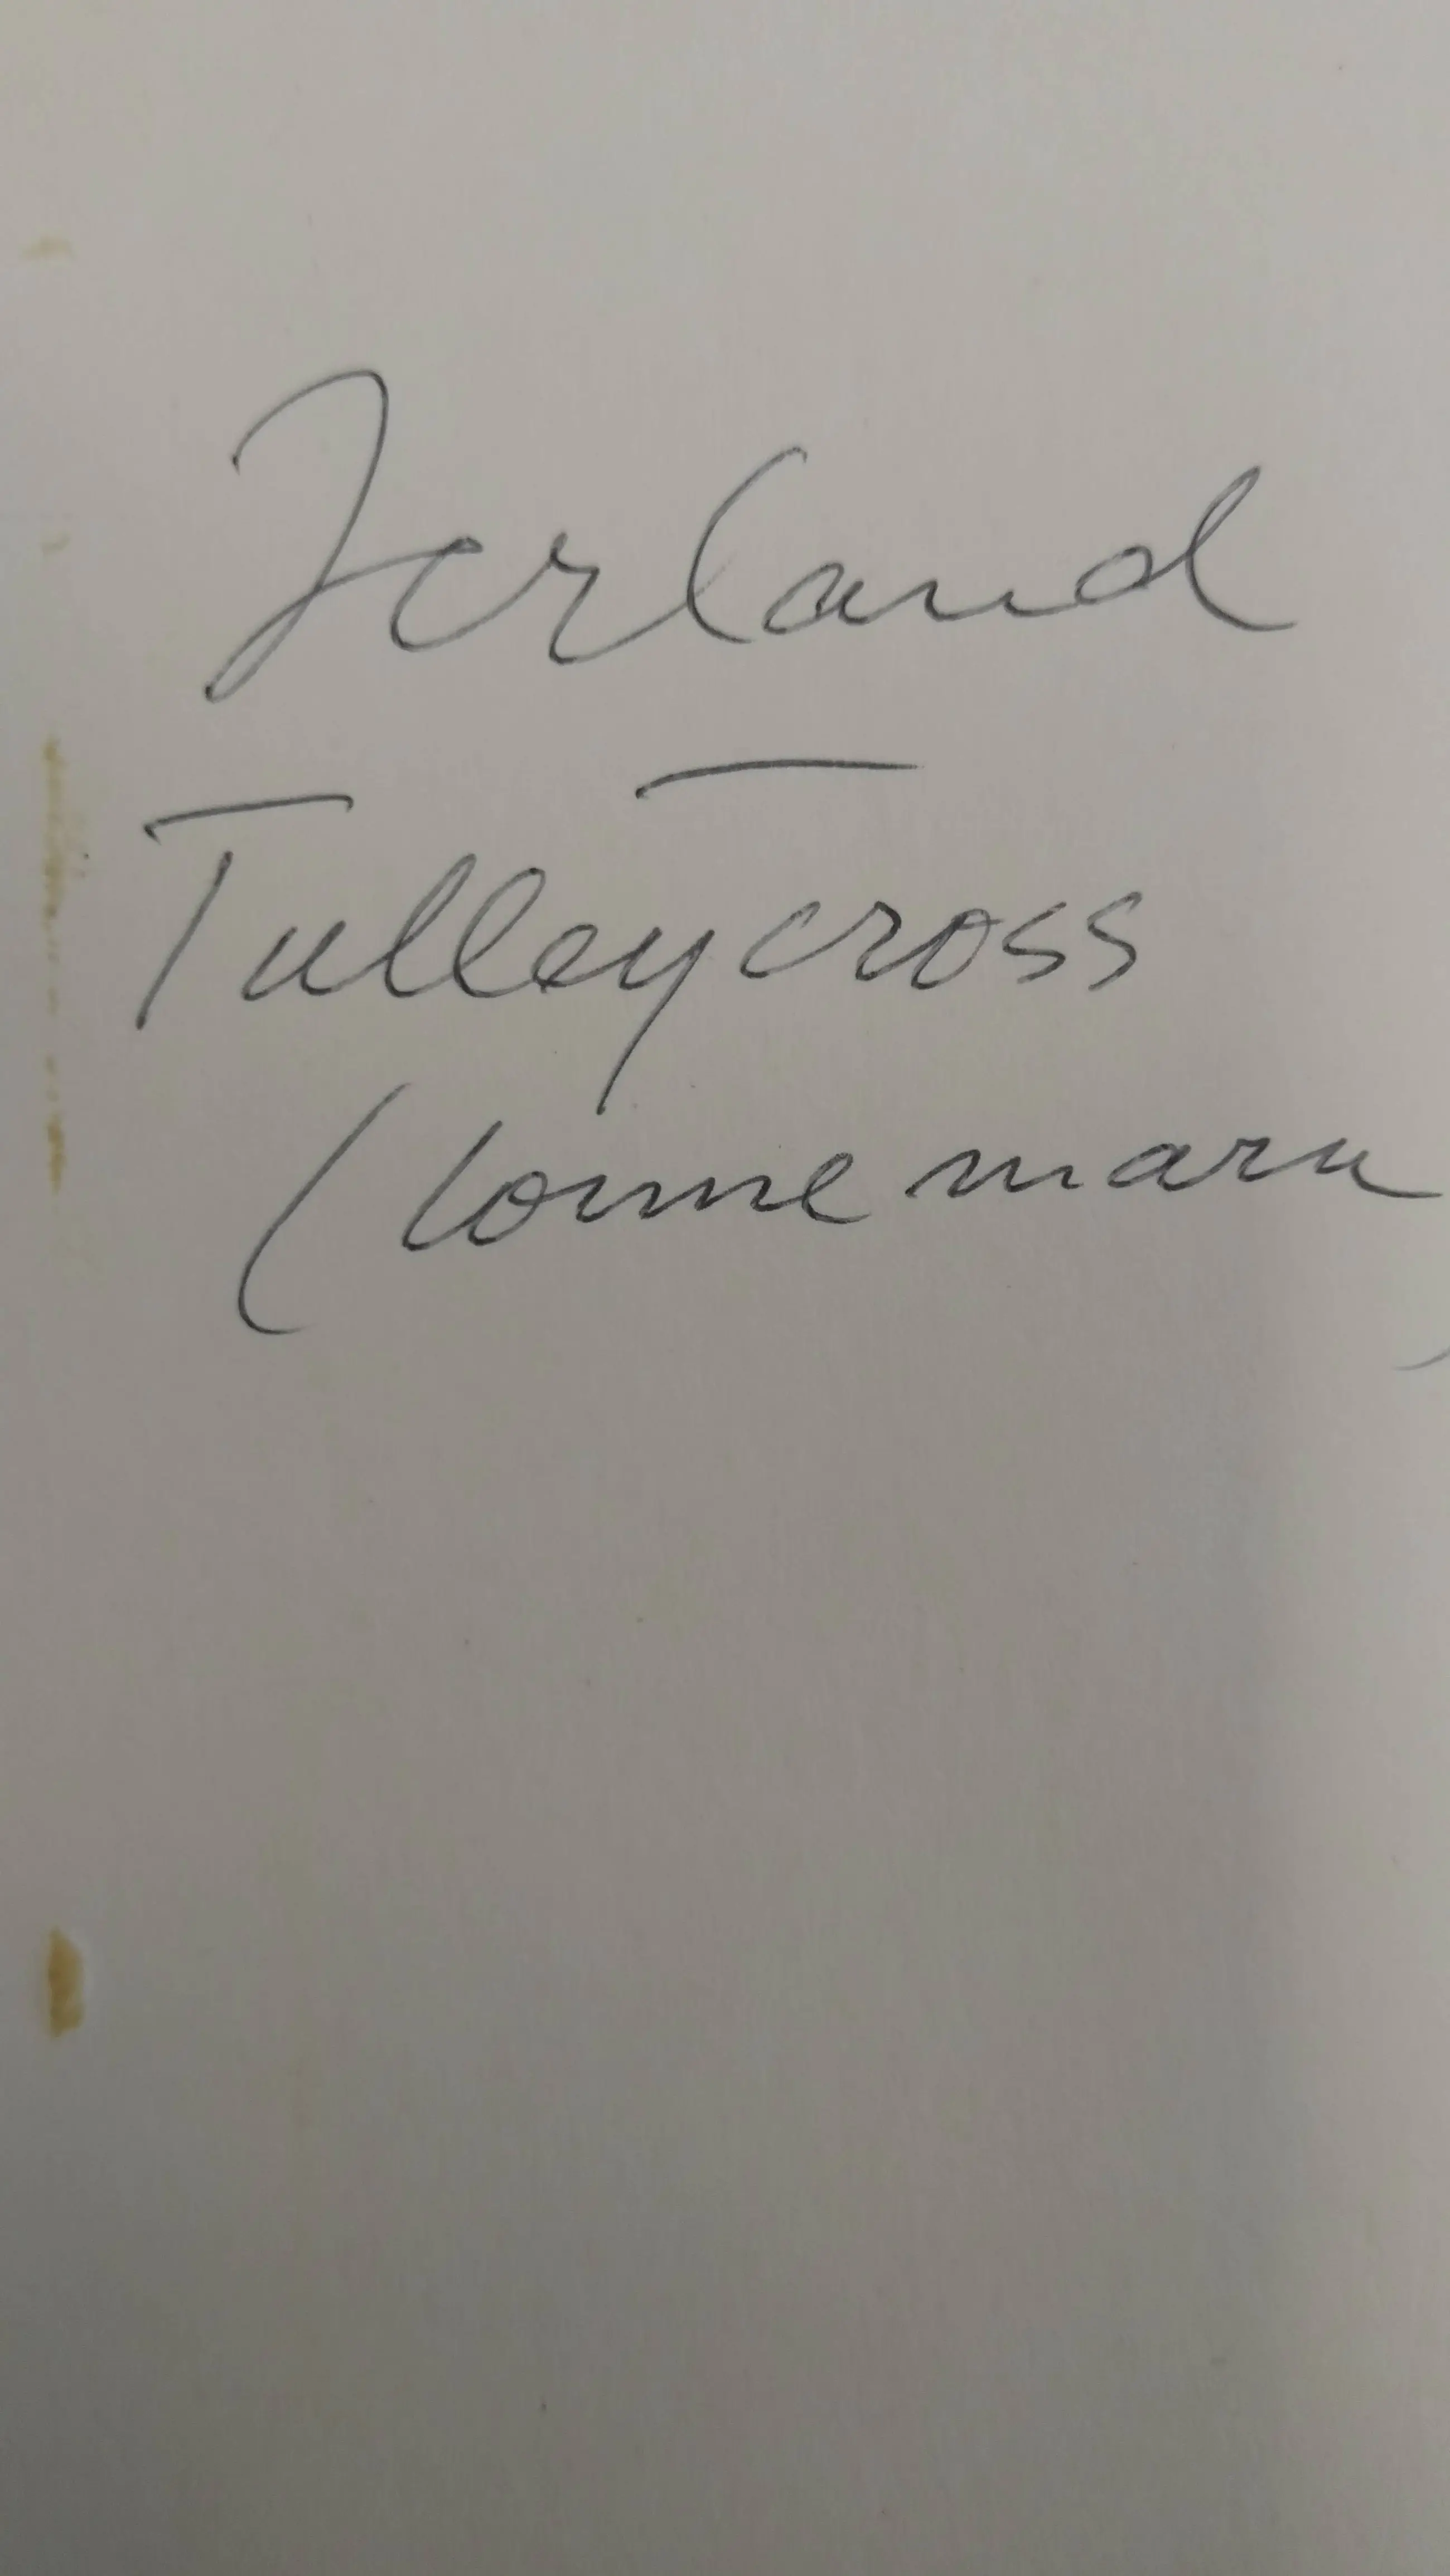 Ierland
Tulleycross
(Connemara)